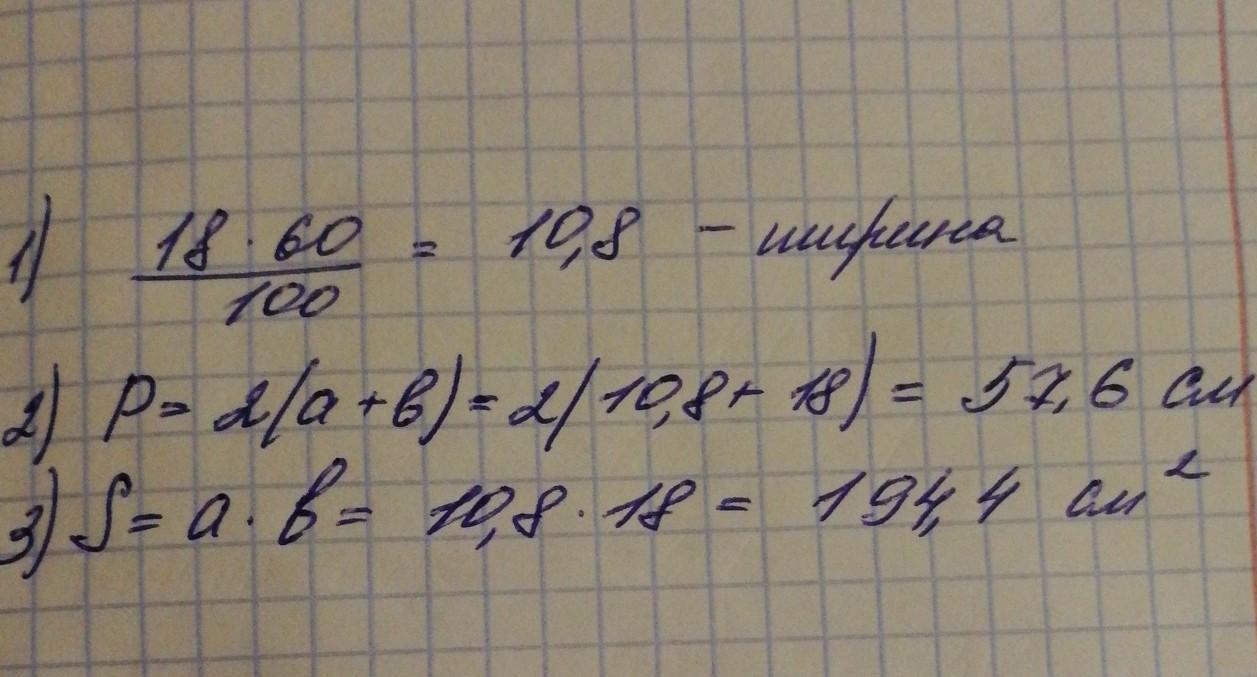 1) 18 · 60 / 100 = 10,8 - ширина
2) P = 2(a+b) = 2(10,8+ 18) = 57,6 см
3) S = a · b = 10,8 · 18 = 194,4 см²